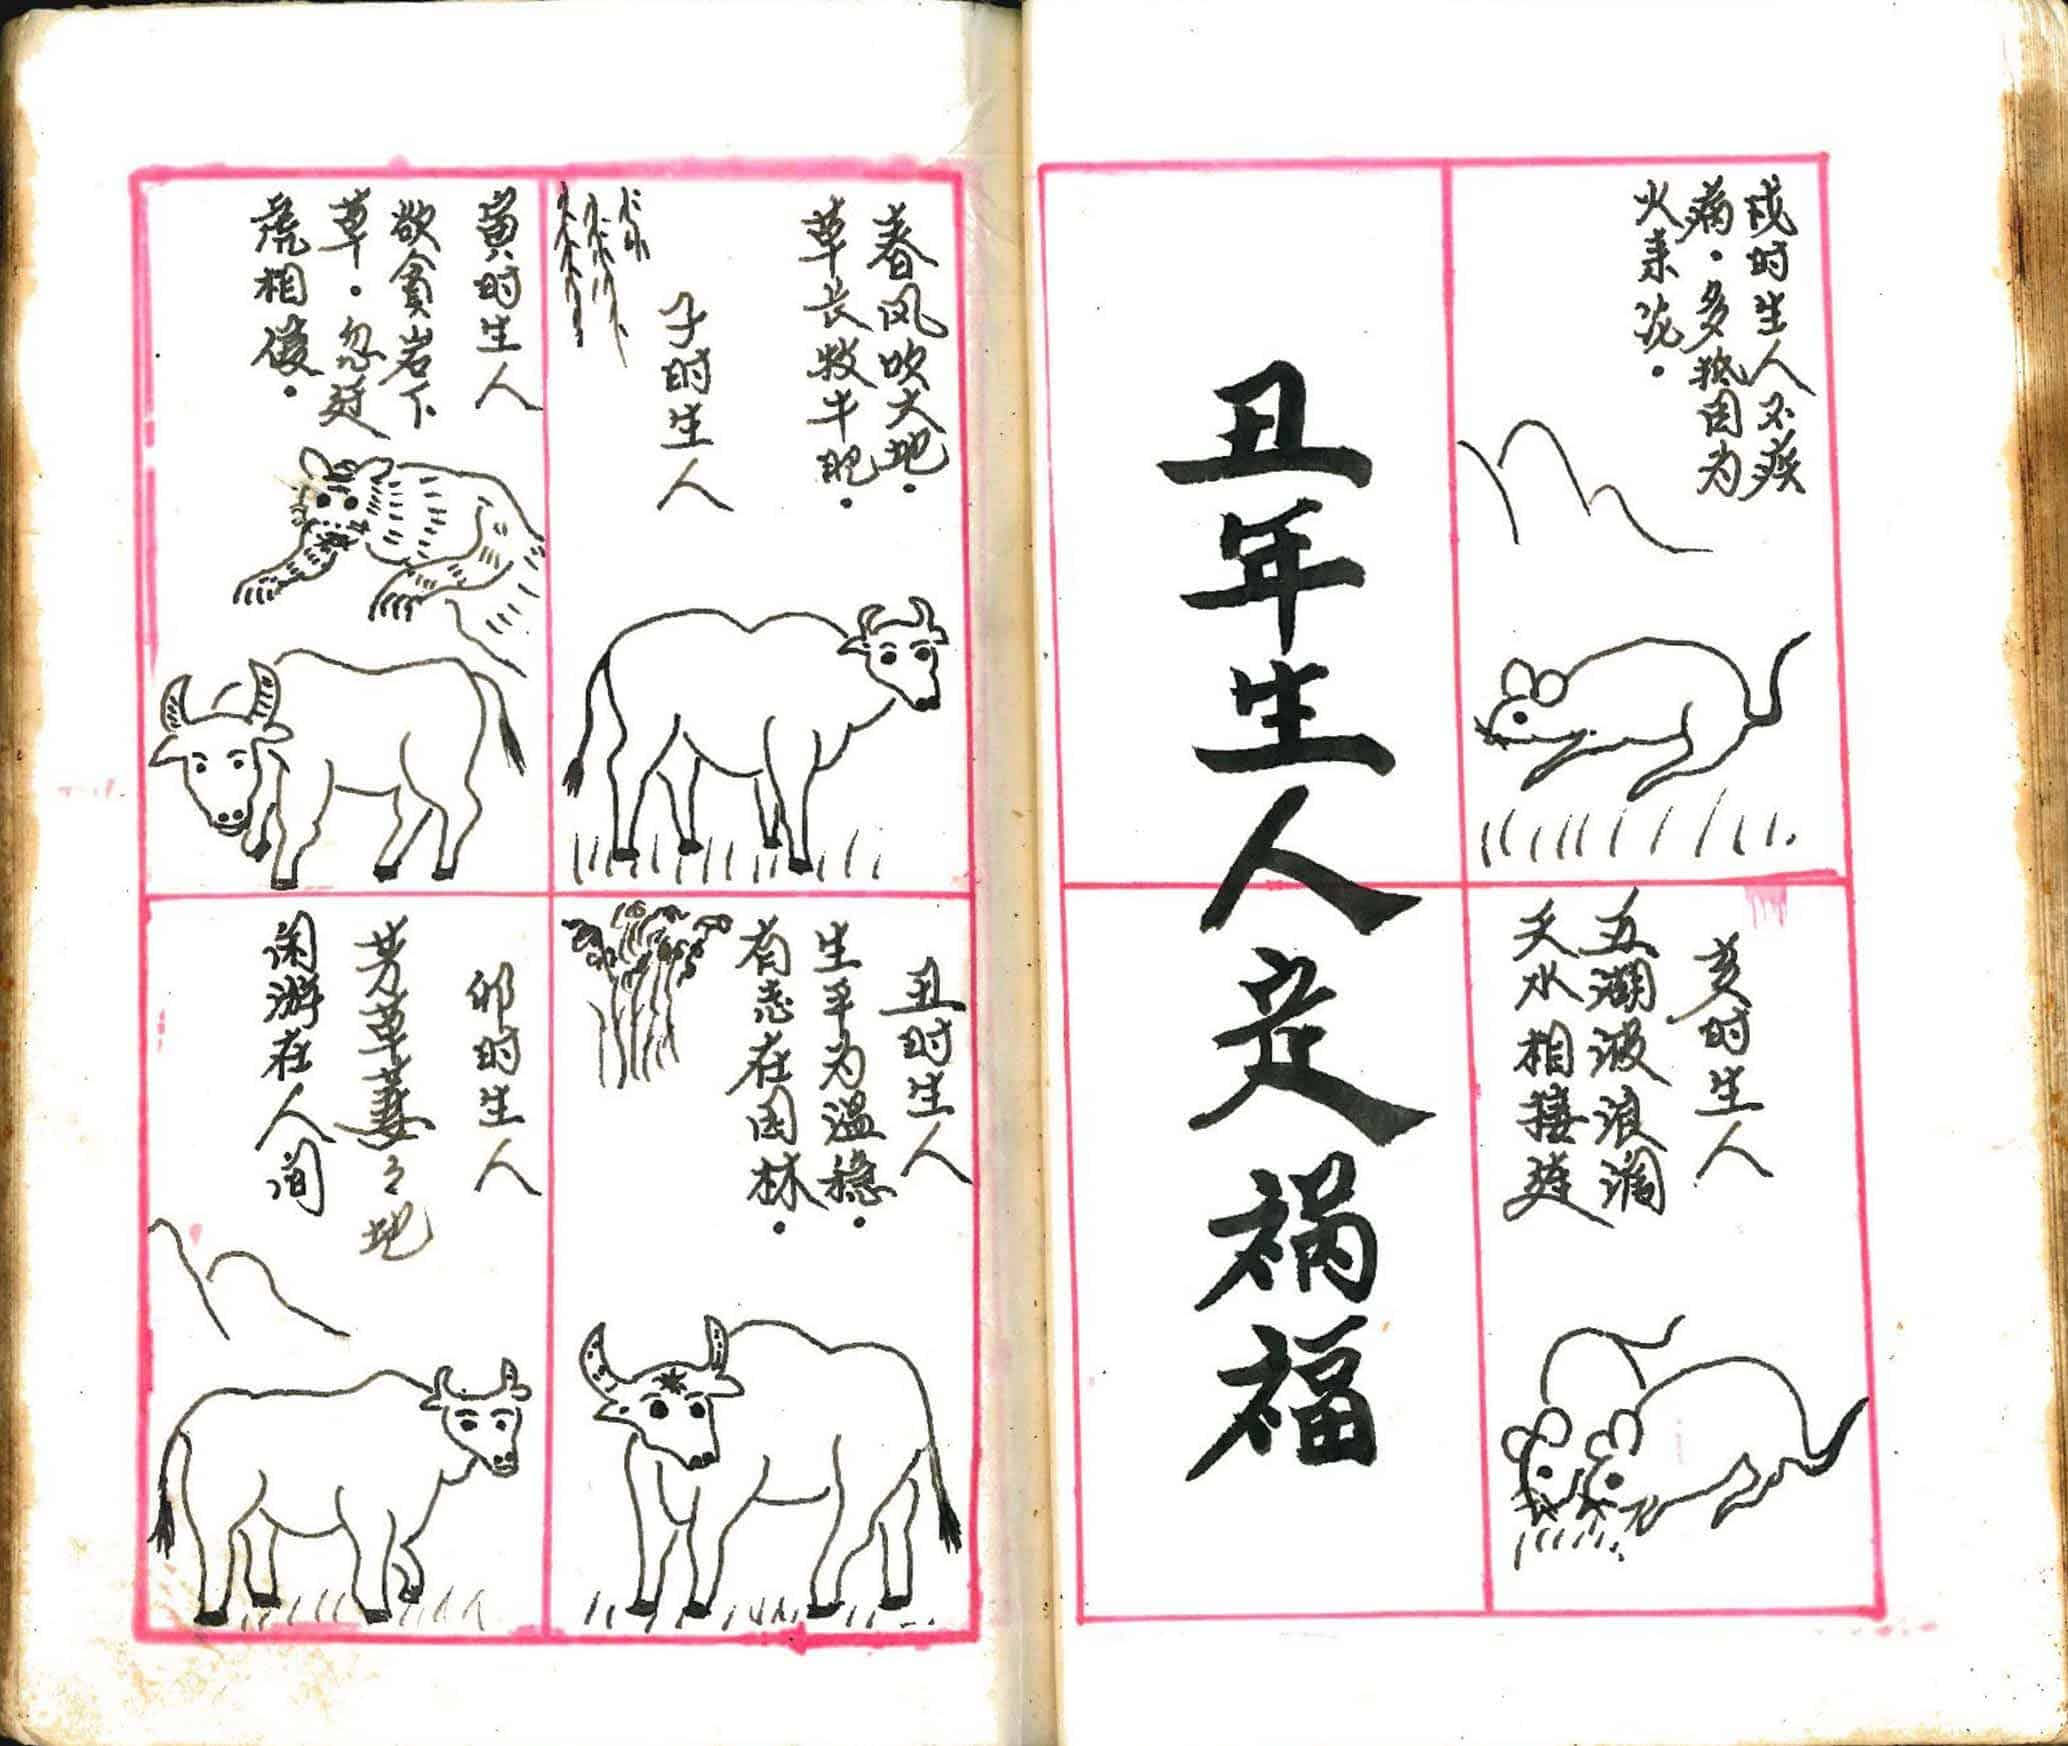 戌时生人不疾
病·多热因为
火来泥·
亥时生人
五湖波浪涌
天水相接连
丑年生人定祸福
春风吹大地·
草长牧牛肥·
子时生人
丑时生人
生平为温稳·
有志在园林·
寅时生人
欲贪岩下
草·忽逢
虎相侵·
卯时生人
芳草萋々地
闲游在人间